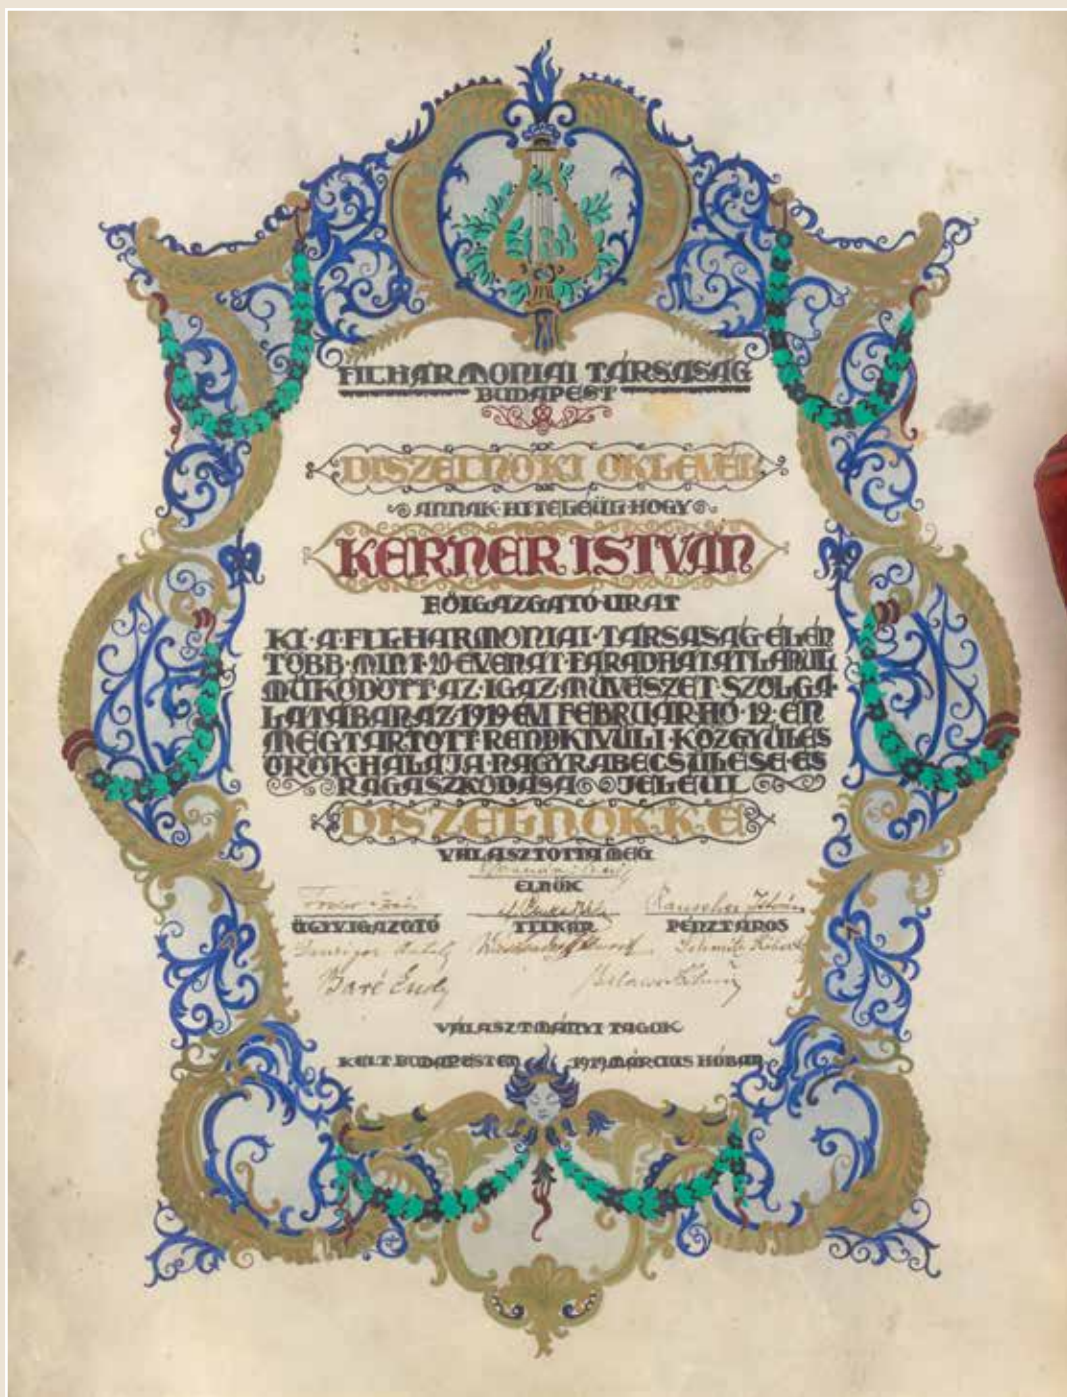 FILHARMONIAI TÁRSASÁG
BUDAPEST
DISZELNÖKI OKLEVÉL
ANNAK HITELEÜL HOGY
KERNER ISTVÁN
FŐIGAZGATÓ URAT
KI·A·FILHARMONIAI·TÁRSASÁG·ÉLÉN
TÖBB·MINT·20·ÉVEN ÁT·FÁRADHATATLANUL
MŰKÖDÖTT AZ·IGAZ·MŰVÉSZET SZOLGÁ-
LATÁBAN AZ·1919·ÉVI FEBRUÁR·HÓ·12·ÉN
MEGTARTOTT RENDKIVÜLI·KÖZGYÜLÉS
ÖRÖK·HÁLÁJA·NAGYRABECSÜLÉSE·ÉS
RAGASZKODÁSA JELÉÜL
DISZELNÖKKÉ
VÁLASZTOTTA MEG
ELNÖK
Rauscher István
ÜGYVIGAZGTÓ TITKÁR PÉNZTÁROS
Schmitz Róbert
Baré Endy
VÁLASZTMÁNYI TAGOK
KELT BUDAPESTEN 1919 MÁRCIUS HÓBAN